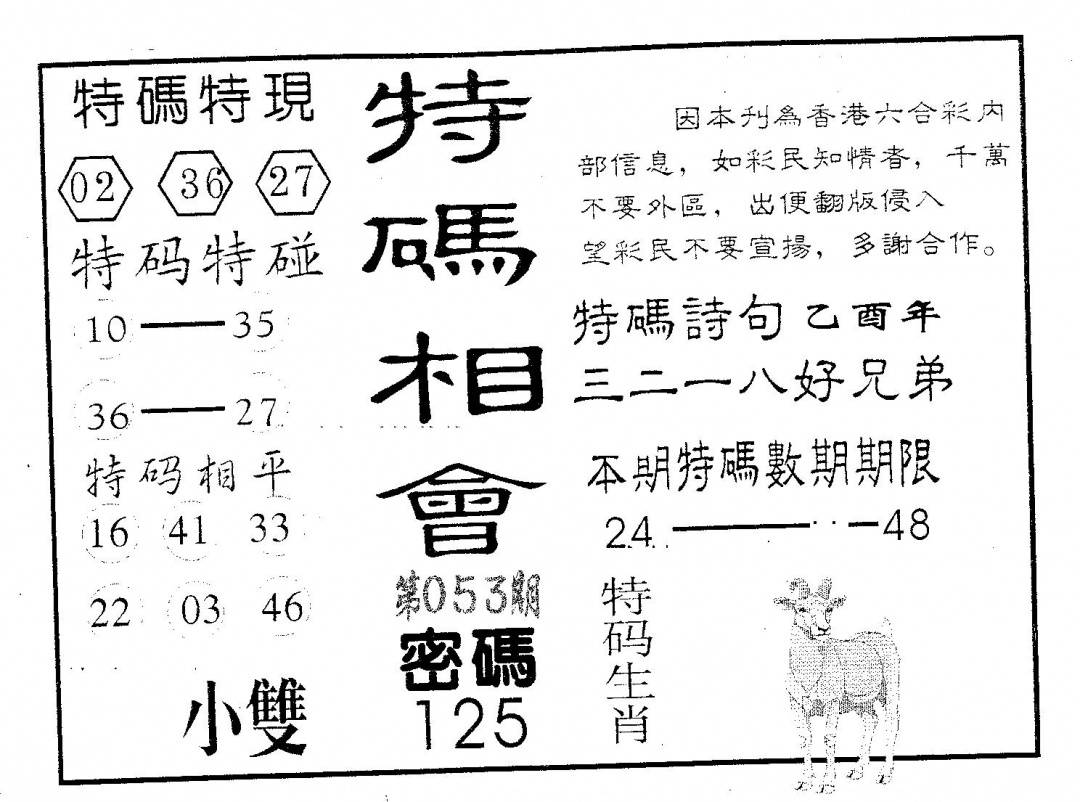 特碼特現
02 36 27
特码特碰
10 — 35
36 — 27
特码相平
16 41 33
22 03 46
小雙
特碼相會
第053期
密碼
125
因本刊為香港六合彩内
部信息，如彩民知情者，千萬
不要外區，出便翻版侵入
望彩民不要宣揚，多謝合作。
特碼詩句 乙酉年
三二一八好兄弟
本期特碼數期期限
24 — 48
特码生肖